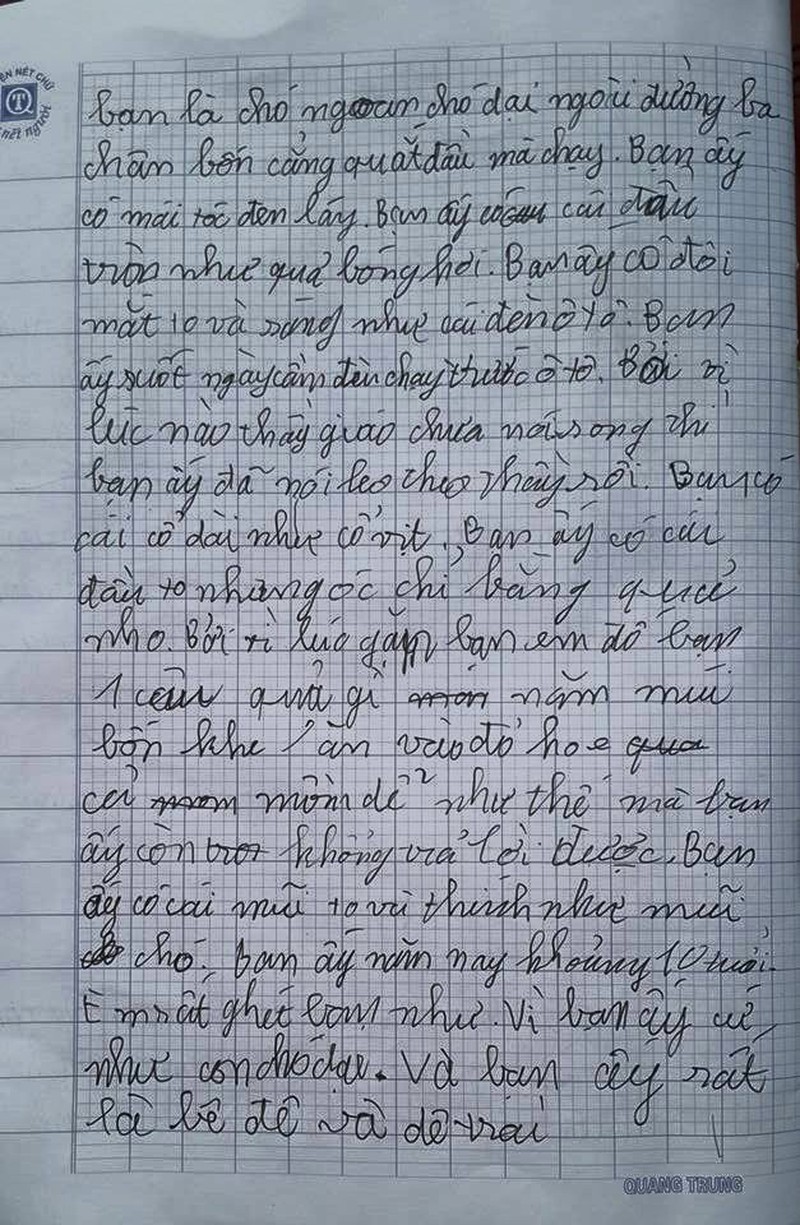 ÈN NÉT CHỮ
nết người
bạn là chó ngoan chó dại ngoài đường ba
chân bốn cẳng quắt đầu mà chạy. Bạn ấy
có mái tóc đen láy. Bạn ấy có cái đầu
tròn như quả bóng hơi. Bạn ấy có đôi
mắt to và sáng như cái đèn ô tô. Bạn
ấy suốt ngày cầm đèn chạy trước ô tô. Bởi vì
lúc nào thầy giáo chưa nói song thì
bạn ấy đã nói leo theo thầy rồi. Bạn có
cái cổ dài như cổ vịt. Bạn ấy có cái
đầu to nhưng óc chỉ bằng quả
nho. Bởi vì lúc gặp bạn em đố bạn
1 câu quả gì năm múi
bốn khe ăn vào đỏ hoe
cả mồm dê² như thế mà bạn
ấy còn không trả lời được. Bạn
ấy có cái mũi to và thính như mũi
chó. Bạn ấy năm nay khoảng 10 tuổi.
Em rất ghét bạn như. Vì bạn ấy cứ
như con chó dại. Và bạn ấy rất
là bê đê và dê trai
QUANG TRUNG